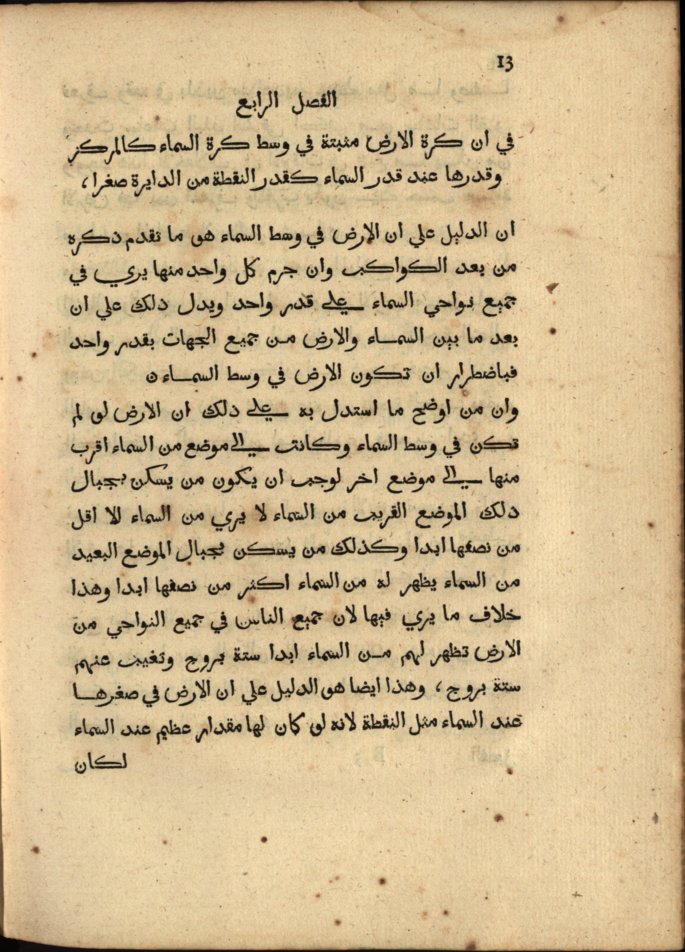 13
الفصل الرابع
في ان كرة الارض مثبتة في وسط كرة السماء كالمركز
وقدرها عند قدر السماء كقدر النقطة من الدايرة صغرا،
ان الدليل علي ان الارض في وسط السماء هو ما تقدم ذكره
من بعد الكواكب وان جرم كل واحد منها يري في
جميع نواحي السماء علي قدر واحد ويدل ذلك علي ان
بعد ما بين السماء والارض من جميع الجهات بقدر واحد
فباضطرار ان تكون الارض في وسط السماء ٥
وان من اوضح ما استدل به علي ذلك ان الارض لو لم
تكن في وسط السماء وكانت الي موضع من السماء اقرب
منها الي موضع اخر لوجب ان يكون من يسكن بجبال
ذلك الموضع القريب من السماء لا يري من السماء الا اقل
من نصفها ابدا وكذلك من يسكن بجبال الموضع البعيد
من السماء يظهر له من السماء اكثر من نصفها ابدا وهذا
خلاف ما يري فيها لان جميع الناس في جميع النواحي من
الارض تظهر لهم من السماء ابدا ستة بروج وتغيب عنهم
ستة بروج، وهذا ايضا هو الدليل علي ان الارض في صغرها
عند السماء مثل النقطة لانه لو كان لها مقدار عظيم عند السماء
لكان